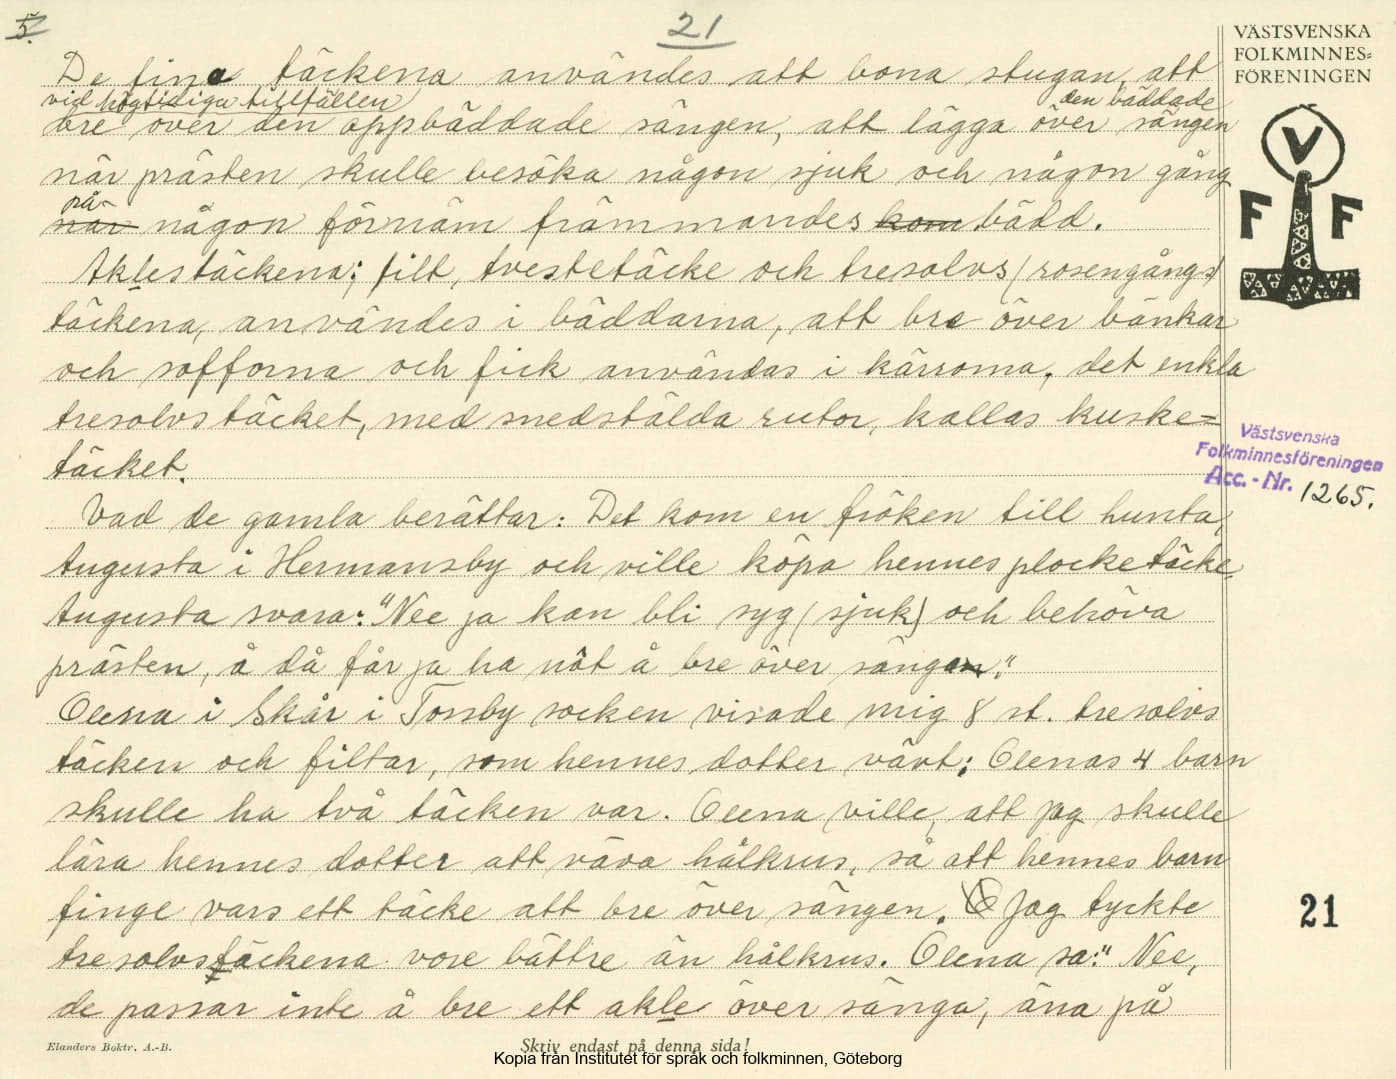 5.
21
VÄSTSVENSKA
FOLKMINNES=
FÖRENINGEN
V
F F
De fina täckena användes att bona stugan, att
vid högtidiga tillfällen den bäddade
bre över den oppbäddade sängen, att lägga över sängen
när prästen skulle besöka någon sjuk och någon gång
på
när någon förnäm främmandes kom bädd.
Aklestäckena; filt, tvestetäcke och tresolvs (rosengångs)
täckena, användes i bäddarna, att bre över bänkar
och sofforna och fick användas i kärrorna, det enkla
tresolvstäcket, med snedstälda rutor, kallas kuske=
täcket.
Vad de gamla berättar: Det kom en fröken till hunta,
Augusta i Hermansby och ville köpa hennes plocketäcke.
Augusta svara: "Nee ja kan bli syg (sjuk) och behöva
prästen, å då får ja ha nôt å bre över sängan."
Olena i Skår i Torsby socken visade mig 8 st. tresolvs
täcken och filtar, som hennes dotter vävt; Olenas 4 barn
skulle ha två täcken var. Olena ville, att jag skulle
lära hennes dotter att väva hålkrus, så att hennes barn
finge vars ett täcke att bre över sängen. Jag tyckte
tresolvstäckena vore bättre än hålkrus. Olena sa: "Nee,
de passar inte å bre ett akle över sänga, äna på
Västsvenska
Folkminnesföreningen
Acc. - Nr. 1265.
21
Elanders Boktr. A.-B.
Skriv endast på denna sida!
Kopia från Institutet för språk och folkminnen, Göteborg